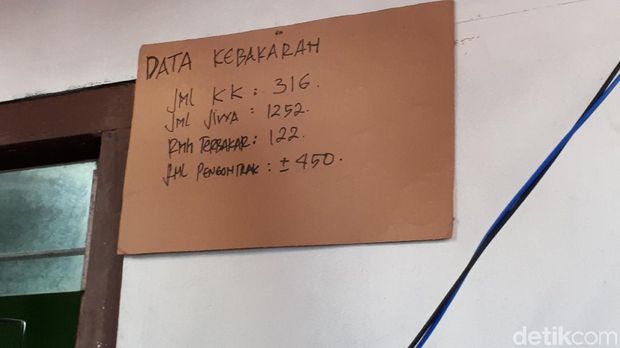 DATA KEBAKARAN
JML KK : 316.
JML JIWA : 1252.
RMH TERBAKAR : 122.
JML PENGONTRAK : ± 450.
detikcom